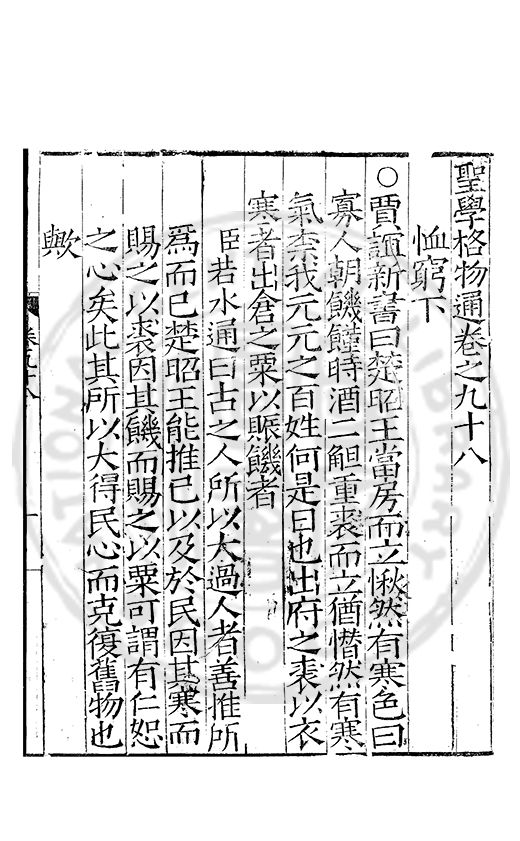 聖學格物通卷之九十八
恤窮下
○賈誼新書曰楚昭王當房而立愀然有寒色曰
寡人朝饑饉時酒二䏙重裘而立猶憯然有寒
氣柰我元元之百姓何是日也出府之裘以衣
寒者出倉之粟以賑饑者
臣若水通曰古之人所以大過人者善推所
爲而已楚昭王能推己以及於民因其寒而
賜之以裘因其饑而賜之以粟可謂有仁恕
之心矣此其所以大得民心而克復舊物也
歟
卷九十八
一